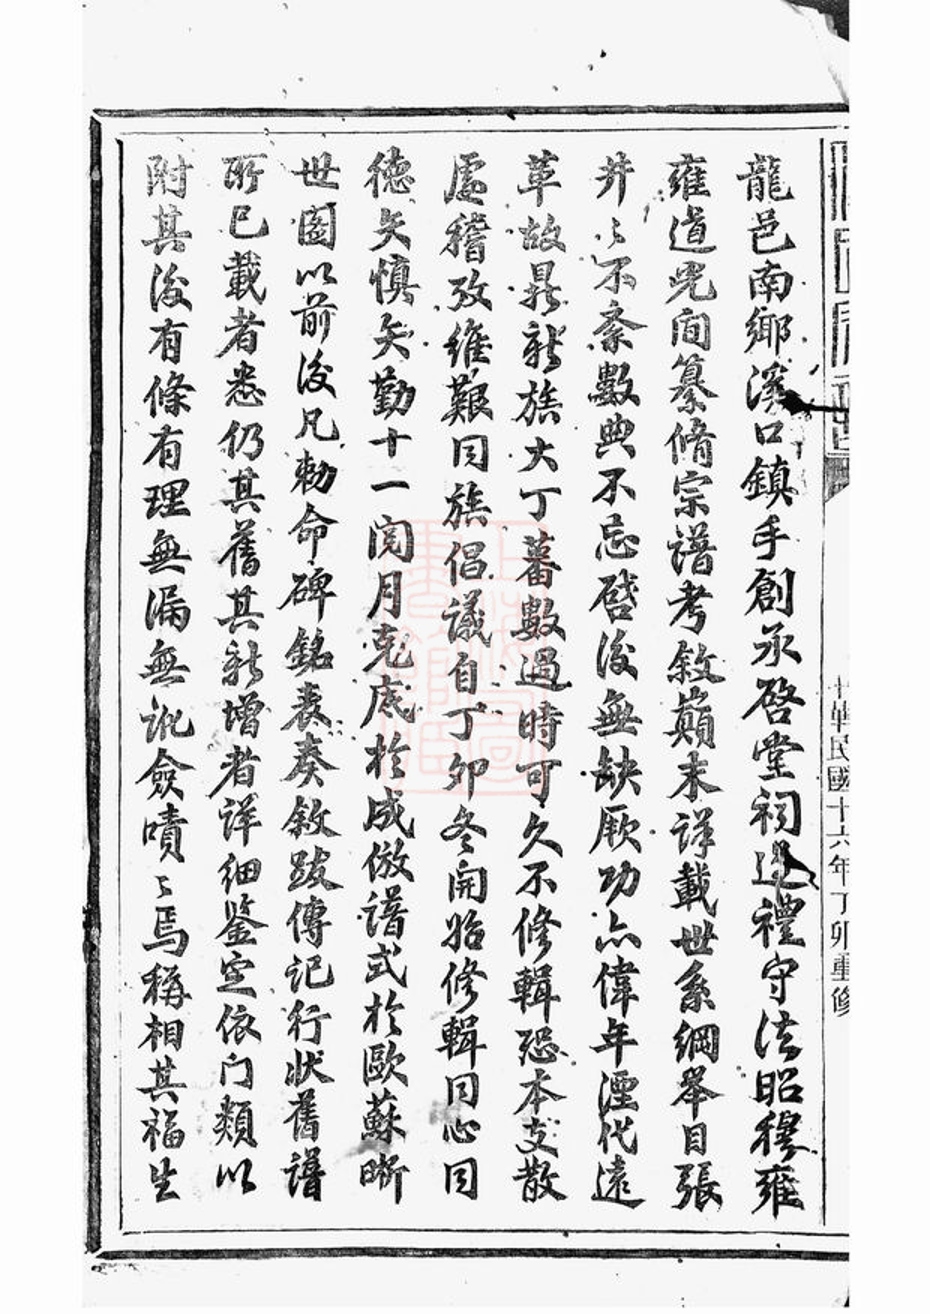 中華民國十六年丁卯重修
龍邑南鄉溪口鎮手創承啓堂祠遇禮守法昭穆雍
雍道光间纂脩宗譜考敘巔末詳載世系綱舉目張
井々不紊數典不忘啓後無缺厥功亦偉年湮代遠
革故鼎新族大丁蕃數過時可久不修輯恐本支散
處稽攷維艱同族倡議自丁卯冬開始修輯同心同
德矣慎矣勤十一閱月克底於成倣譜式於歐蘇晰
世图以前後凡勅命碑銘表奏敘跋傳记行狀舊譜
所已載者悉仍其舊其新增者详细鉴定依门類以
附其後有條有理無漏無訛僉嘖々焉稱相其福生